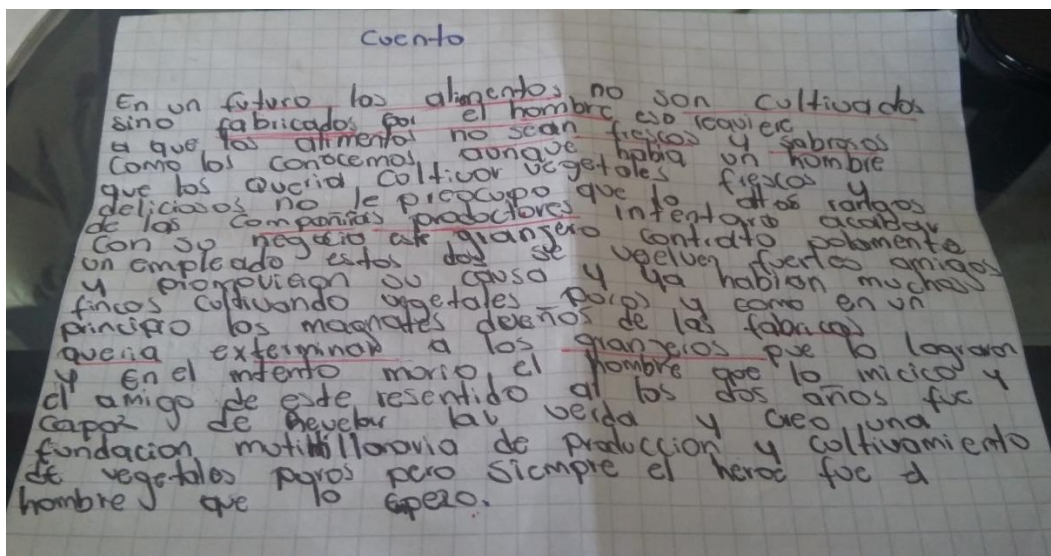 Cuento
En un futuro los alimentos no son cultivados
sino fabricados por el hombre eso requiere
a que los alimentos no sean frescos y sabrosos
como los conocemos aunque habia un hombre
que los queria cultivar vegetales frescos y
deliciosos no le preocupo que lo altos rangos
de las compañias productores intentara acabar
con su negocio este granjero contrato
un empleado estos dos se vuelven fuertes amigos
y promovieron su causa y ya habian muchas
fincas cultivando vegetales puros y como en un
principio los magnates dueños de las fabricas
queria exterminar a los granjeros pue lo lograron
y en el intento morio el hombre que lo inicico y
el amigo de este resentido al los dos años fue
capaz de revelar la verda y creo una
fundacion de produccion y cultivamiento
de vegetales puros pero siempre el heroe fue
hombre que lo